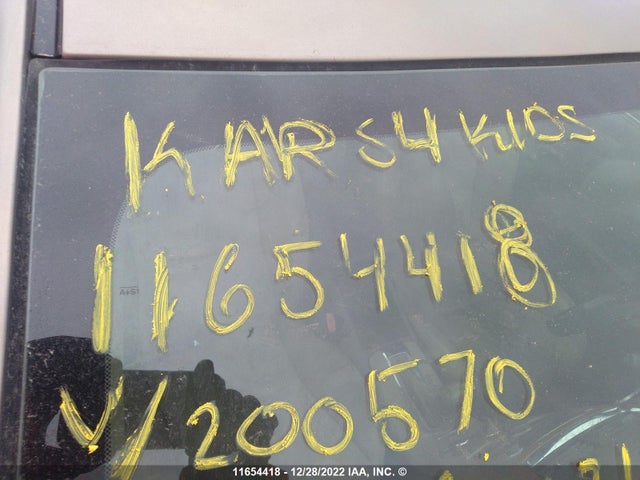 KARS4KIDS
11654418
V/200570
AS1
11654418 - 12/28/2022 IAA, INC. ©